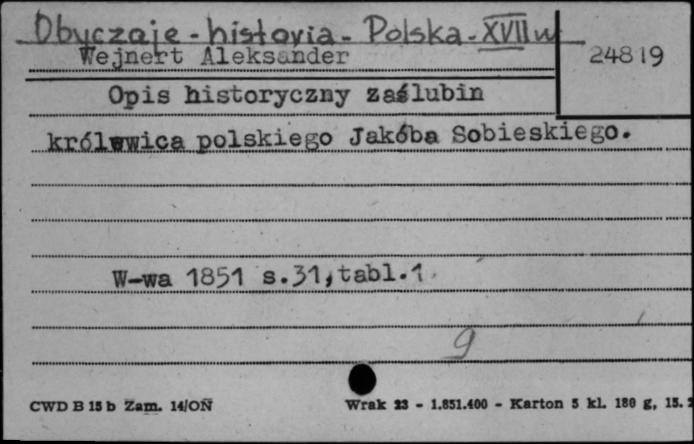 Obyczaje - historia - Polska - XVII w
Wejnert Aleksander
24819
Opis historyczny zaślubin
królewica polskiego Jakóba Sobieskiego.
W-wa 1851 s.31,tabl.1.
9
CWD B 15 b Zam. 14/ON
Wrak 23 - 1.851.400 - Karton 5 kl. 180 g, 15. 2